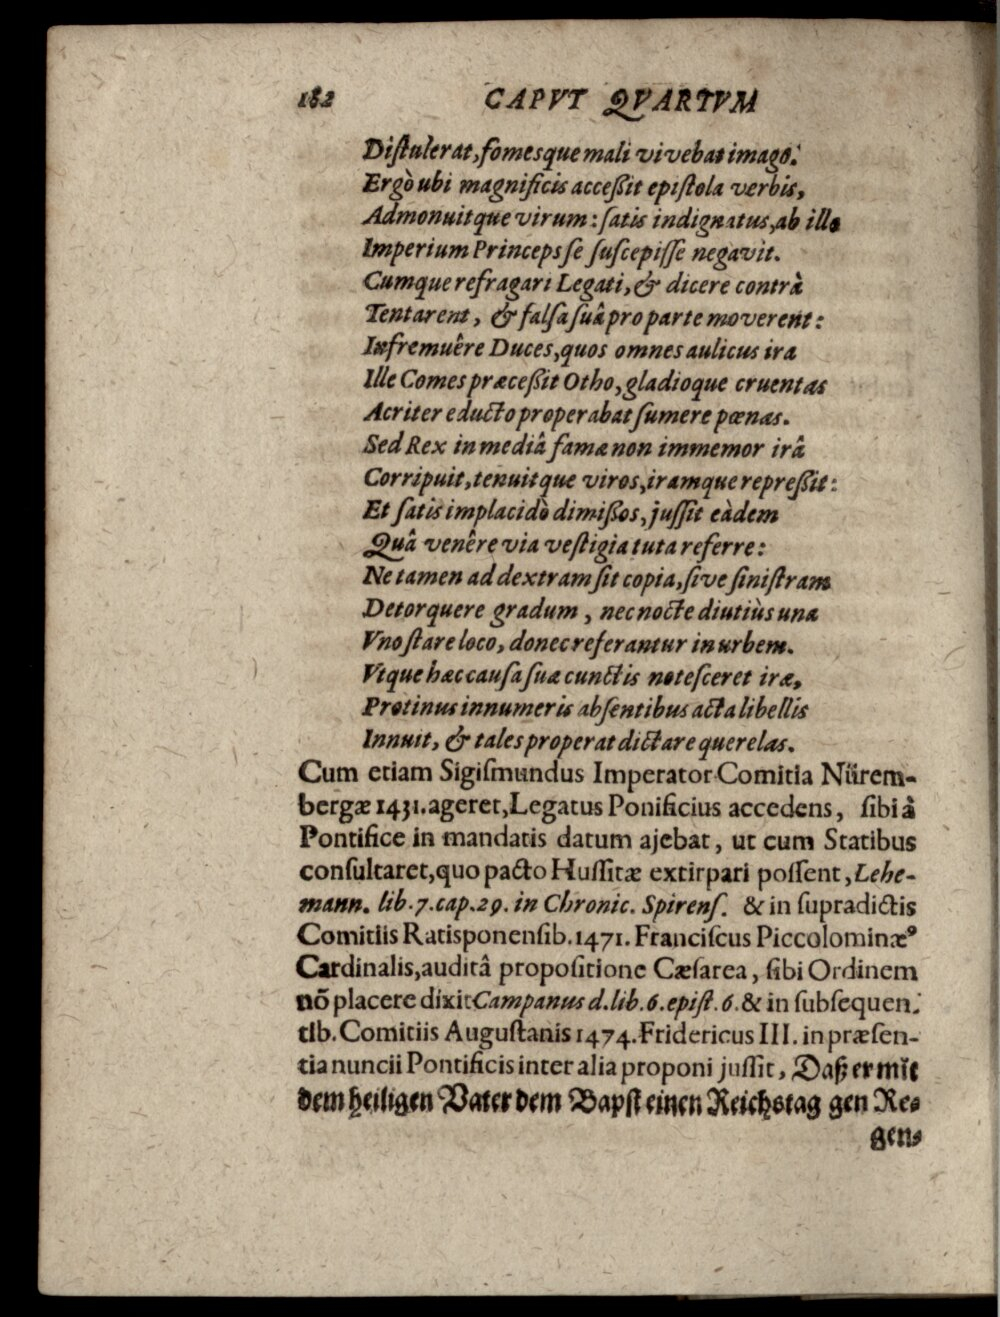 182 CAPVT QVARTVM
Diſtulerat, fomesque mali vivebat imago.
Ergò ubi magnificis acceßit epiſtola verbis,
Admonuitque virum: ſatis indignatus, ab illo
Imperium Princeps ſe ſuſcepiſſe negavit.
Cumque refragari Legati, & dicere contrà
Tentarent, & falſa ſuâ pro parte moverent:
Infremuêre Duces, quos omnes aulicus ira
Ille Comes præceßit Otho, gladioque cruentas
Acriter educto properabat ſumere pœnas.
Sed Rex in mediâ famæ non immemor irâ
Corripuit, tenuitque viros, iramque repreßit:
Et ſatis implacidò dimißos, juſſit eàdem
Quâ venêre via veſtigia tuta referre:
Ne tamen ad dextram ſit copia, ſive ſiniſtram
Detorquere gradum, nec nocte diutiùs una
Vno ſtare loco, donec referantur in urbem.
Vtque hæc cauſa ſuæ cunctis noteſceret iræ,
Protinus innumeris abſentibus acta libellis
Innuit, & tales properat dictare querelas.
Cum etiam Sigiſmundus Imperator Comitia Nürem-
bergæ 1431. ageret, Legatus Ponificius accedens, ſibi â
Pontifice in mandatis datum ajebat, ut cum Statibus
conſultaret, quo pacto Huſſitæ extirpari poſſent, Lehe-
mann. lib. 7. cap. 29. in Chronic. Spirenſ. & in ſupradictis
Comitiis Ratisponenſib. 1471. Franciſcus Piccolominæꝰ
Cardinalis, auditâ propoſitione Cæſarea, ſibi Ordinem
nō placere dixit Campanus d. lib. 6. epiſt. 6. & in ſubſequen-
tib. Comitiis Auguſtanis 1474. Fridericus III. in præſen-
tia nuncii Pontificis inter alia proponi juſſit, Daß er mit
dem heiligen Vater dem Bapſt einen Reichstag gen Re-
gen-